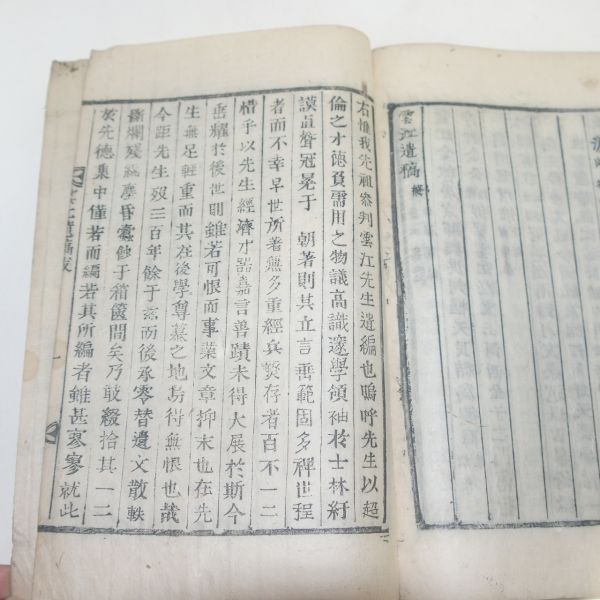 雲江遺稿終
右惟我先祖參判雲江先生遺編也嗚呼先生以超
倫之才德負需用之物議高識邃學領袖於士林紆
謨直聲冠冕于 朝著則其立言垂範固多裨世程
者而不幸早世所著無多重經兵燹存者百不一二
惜乎以先生經濟才器嘉言善蹟未得大展於斯今
垂耀於後世則雖若可恨而事業文章抑末也在先
生無足輕重而其在後學尊慕之地烏得無恨也哉
今距先生歿三百年餘于玆而後承零替遺文散軼
斷爛殘編塵昏蠹蝕于箱篋間矣乃敢綴拾其一二
於先德集中僅若而編若其所編者雖甚寥寥就此
雲江遺稿跋 一